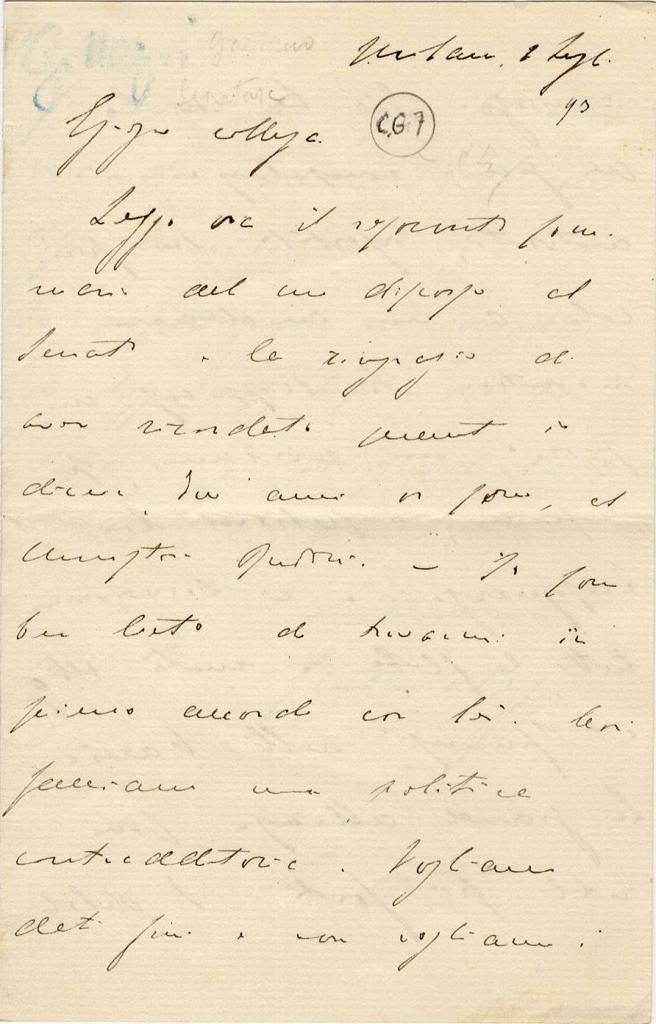 G. Negri gaetano
senatore
Milano, 2 Lugl.
93
C.G.7
Egregio collega.
Leggo ora il resoconto som-
mario del suo discorso al
Senato e la ringrazio di
aver ricordato quanto io
dicevo, due anni or sono, al
Ministro Rudinì. — Io sono
ben lieto di trovarmi in
pieno accordo con lei. Noi
facciamo una politica
contradditoria. Vogliamo
dati fini e non vogliamo i